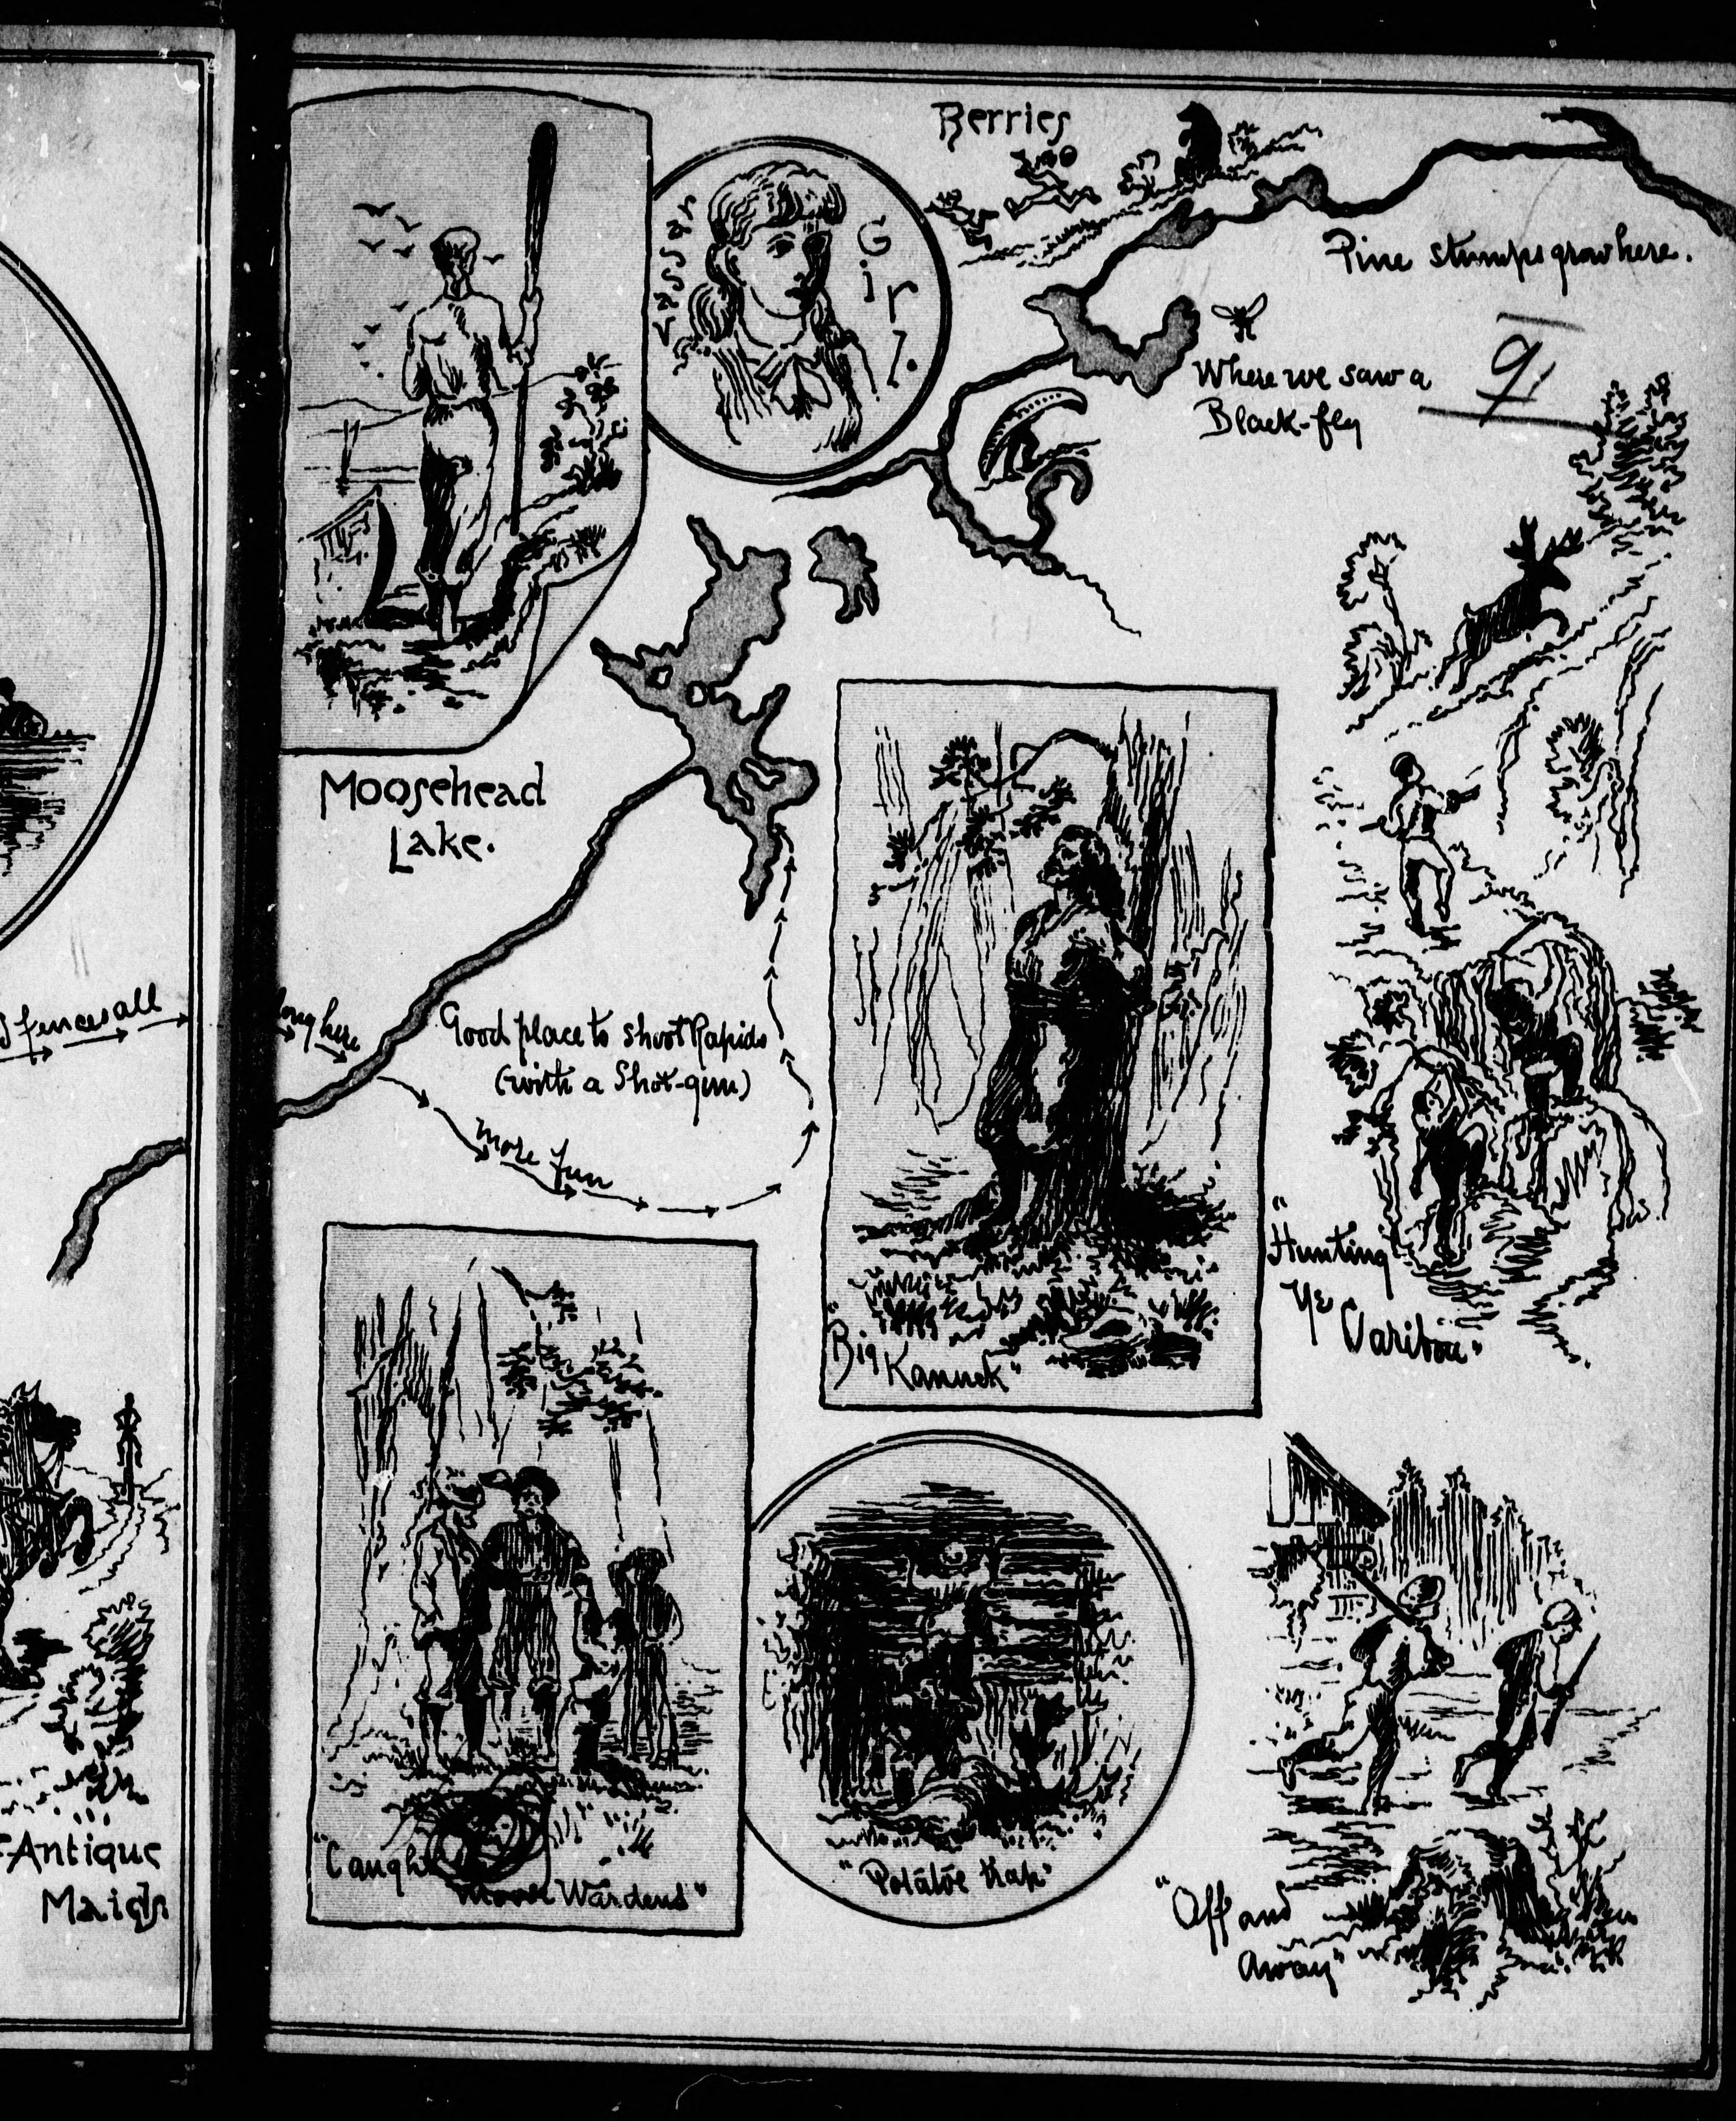 Berries
Vassar
Girl.
Pine stumps grow here.
9
Where we saw a
Black-fly
Moosehead
Lake.
fences all
long here
Good place to shoot Rapids
(with a Shot-gun)
more fun
"Hunting
Ye Caribou"
"Big
Kanuck"
Antique
Maids
"Caught
Moose Wardens"
"Potatoe trap"
"Off and
Away"